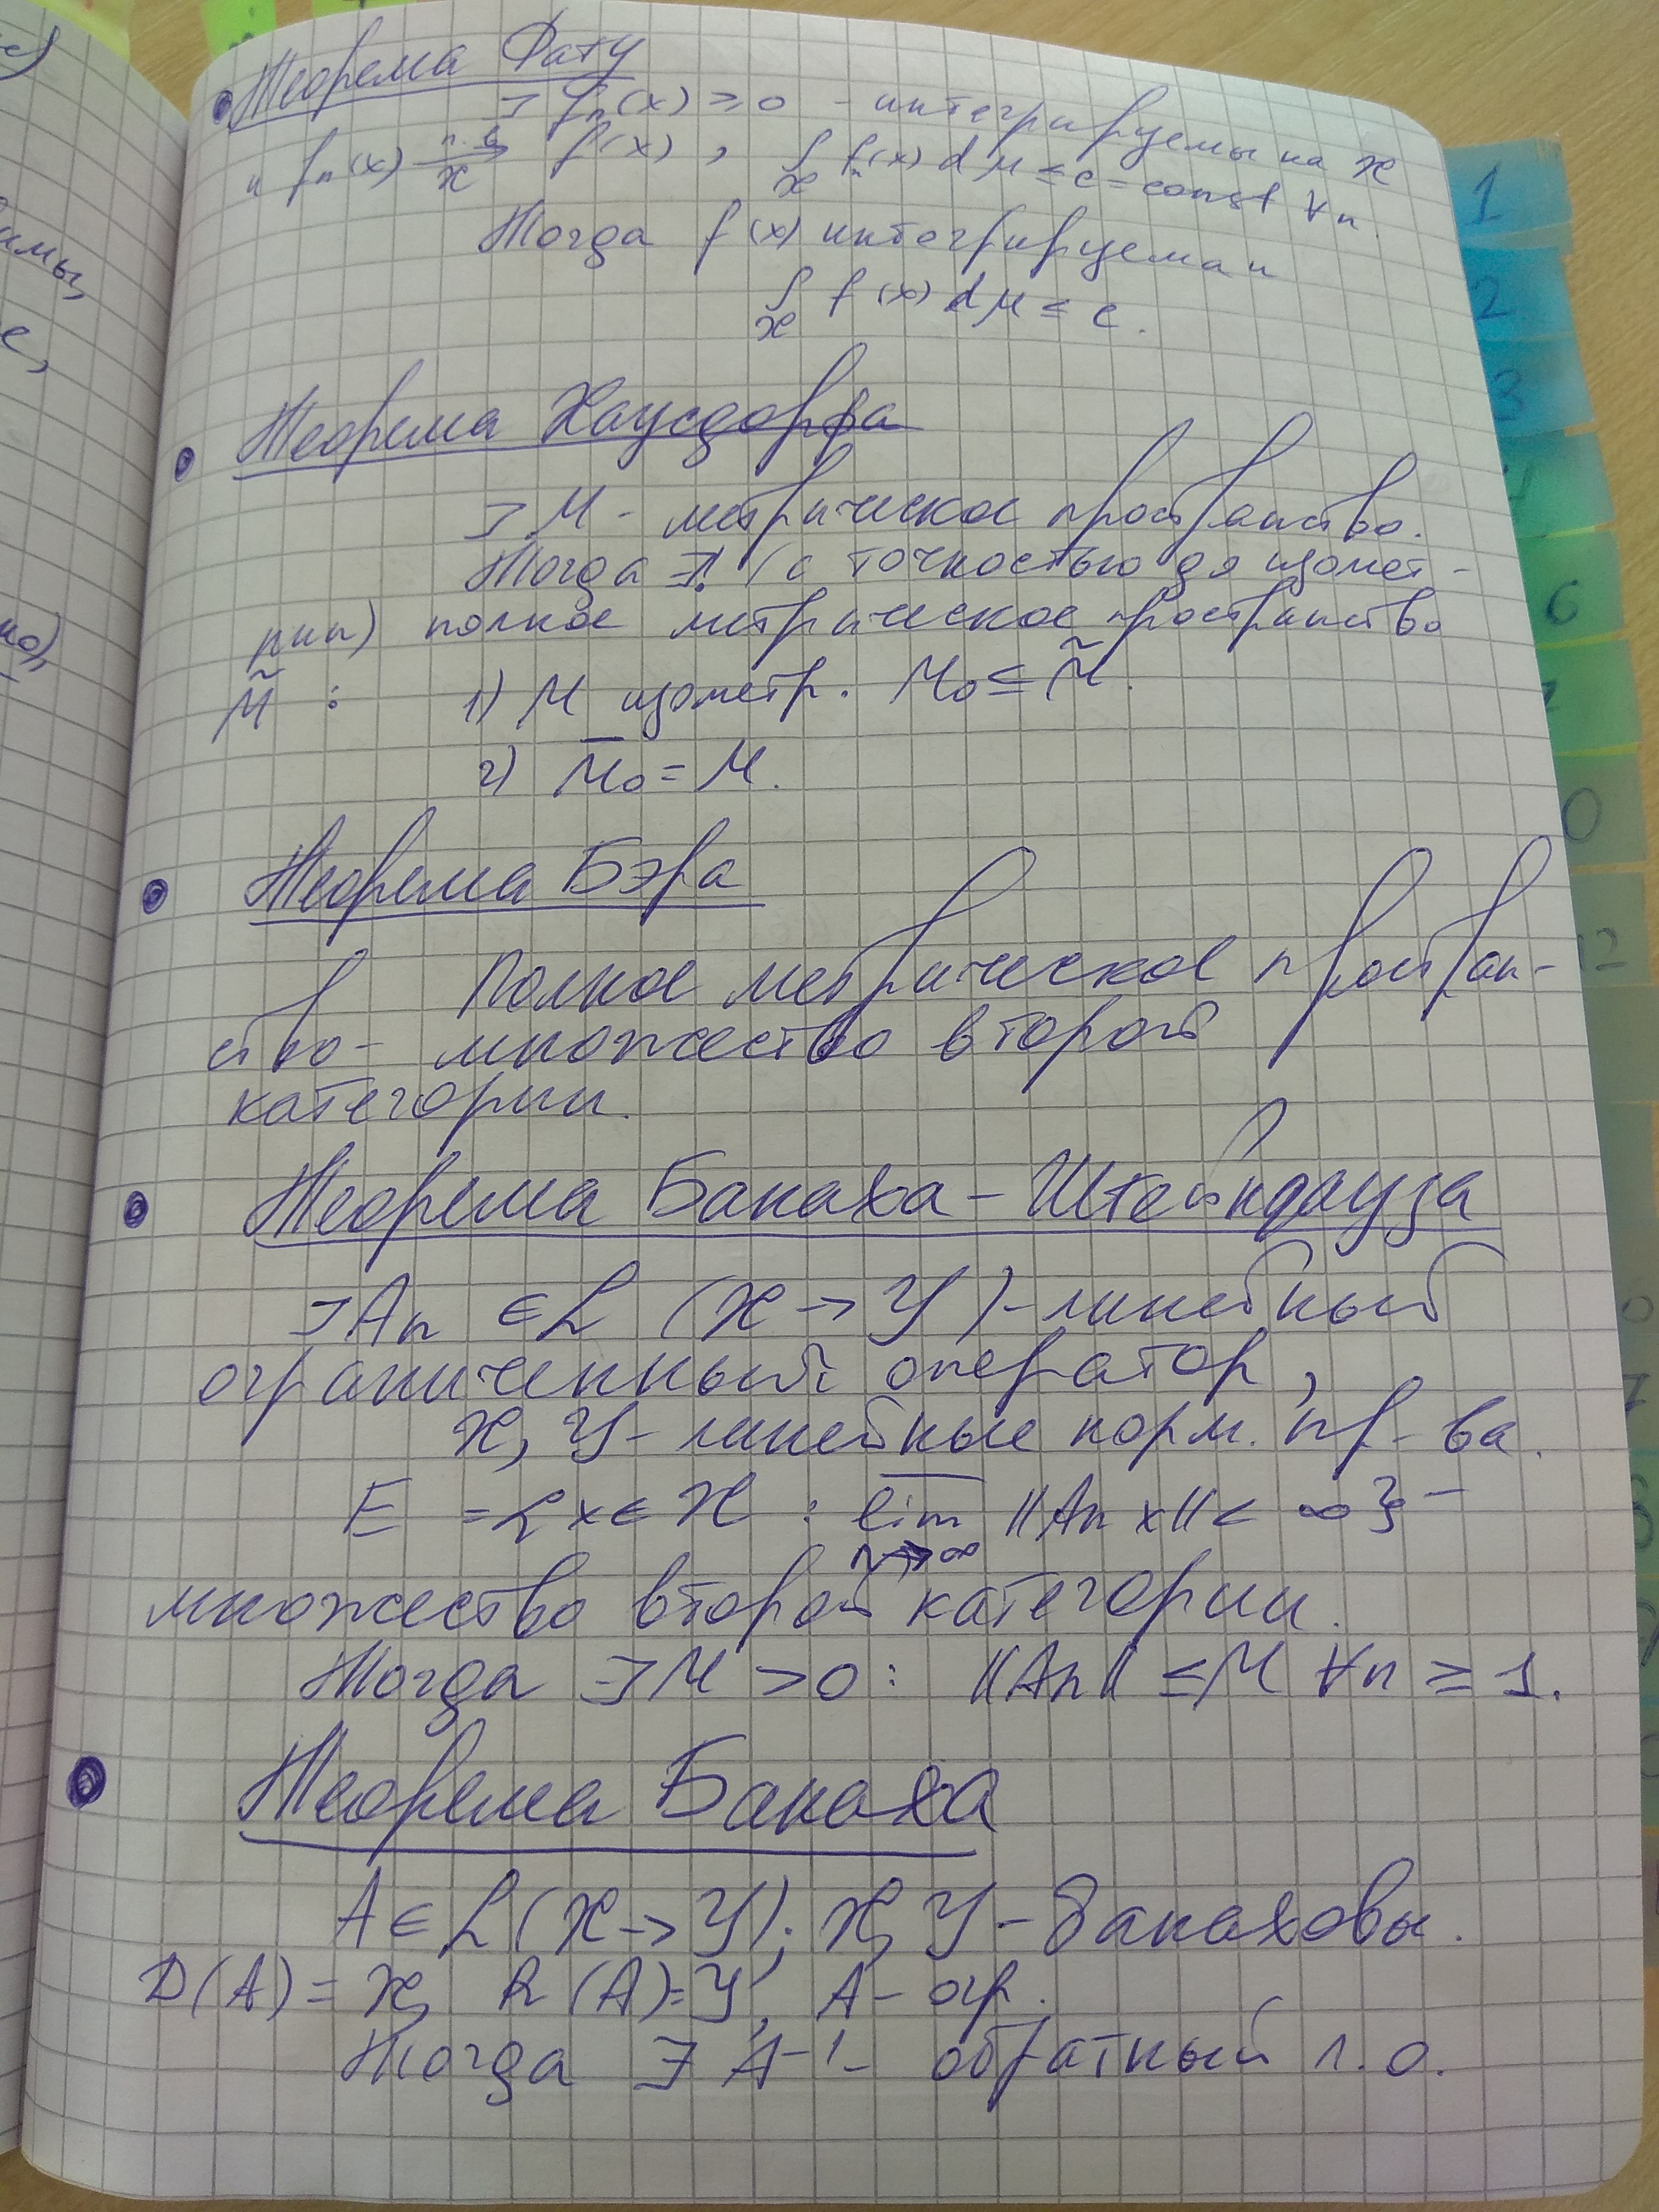 Теорема Фату
∃ fₙ(x) ≥ 0 - интегрируемы на X
и fₙ(x) п.в →/X f(x), ∫_X fₙ(x) dμ ≤ c = const ∀n.
Тогда f(x) интегрируема и
∫_X f(x) dμ ≤ c.
Теорема Хаусдорфа
⊐ M - метрическое пространство.
Тогда ∃! (с точностью до изомет-
рии) полное метрическое пространство
M̃ : 1) M изометр. M₀ ⊆ M̃.
2) M̅₀ = M.
Теорема Бэра
Полное метрическое простран-
ство - множество второй
категории.
Теорема Банаха - Штейнгауза
⊐ Aₙ ∈ L (X → Y) - линейный
ограниченный оператор,
X, Y - линейные норм. пр-ва.
E = {x ∈ X : l̅i̅m̅ n→∞ ||Aₙ x|| < ∞} -
множество второй категории.
Тогда ∃ M > 0 : ||Aₙ|| ≤ M ∀n ≥ 1.
Теорема Банаха
A ∈ L (X → Y); X, Y - банаховы.
D(A) = X, R(A) = Y, A - огр.
Тогда ∃ A⁻¹ - обратный л.о.
1
2
3
6
0
12